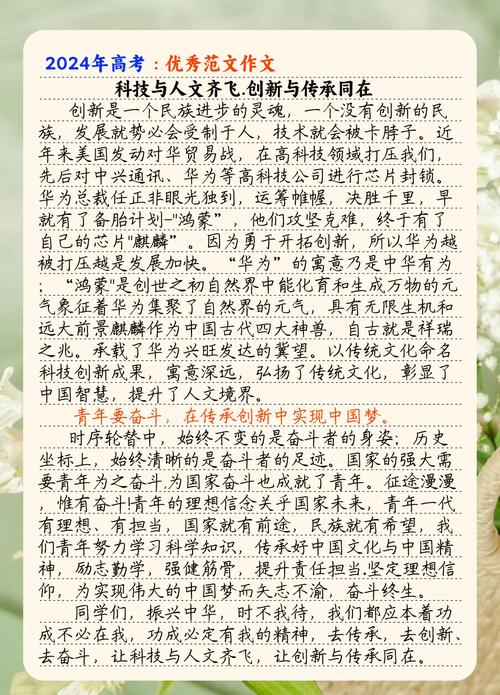 2024年高考：优秀范文作文
科技与人文齐飞.创新与传承同在
创新是一个民族进步的灵魂，一个没有创新的民
族，发展就势必会受制于人，技术就会被卡脖子。近
年来美国发动对华贸易战，在高科技领域打压我们，
先后对中兴通讯、华为等高科技公司进行芯片封锁。
华为总裁任正非眼光独到，运筹帷幄，决胜千里，早
就有了备胎计划-"鸿蒙”，他们攻坚克难，终于有了
自己的芯片"麒麟”。因为勇于开拓创新，所以华为越
被打压越是发展加快。“华为”的寓意乃是中华有为
；“鸿蒙"是创世之初自然界中能化育和生成万物的元
气象征着华为集聚了自然界的元气，具有无限生机和
远大前景麒麟作为中国古代四大神兽，自古就是祥瑞
之兆。承载了华为兴旺发达的冀望。以传统文化命名
科技创新成果，寓意深远，弘扬了传统文化，彰显了
中国智慧，提升了人文境界。
青年要奋斗，在传承创新中实现中国梦。
时序轮替中，始终不变的是奋斗者的身姿；历史
坐标上，始终清晰的是奋斗者的足迹。国家的强大需
要青年为之奋斗,为国家奋斗也成就了青年。征途漫漫
，惟有奋斗!青年的理想信念关乎国家未来，青年一代
有理想、有担当，国家就有前途，民族就有希望，我
们青年努力学习科学知识，传承好中国文化与中国精
神，励志勤学，强健筋骨，提升责任担当.坚定理想信
仰，为实现伟大的中国梦而矢志不渝，奋斗终生。
同学们，振兴中华，时不我待，我们都应本着功
成不必在我，功成必定有我的精神，去传承，去创新、
去奋斗，让科技与人文齐飞，让创新与传承同在。